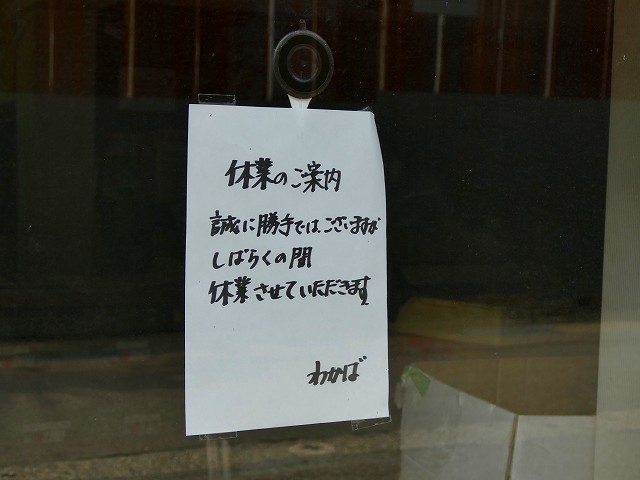 休業のご案内
誠に勝手ではございますが
しばらくの間
休業させていただきます
わかば